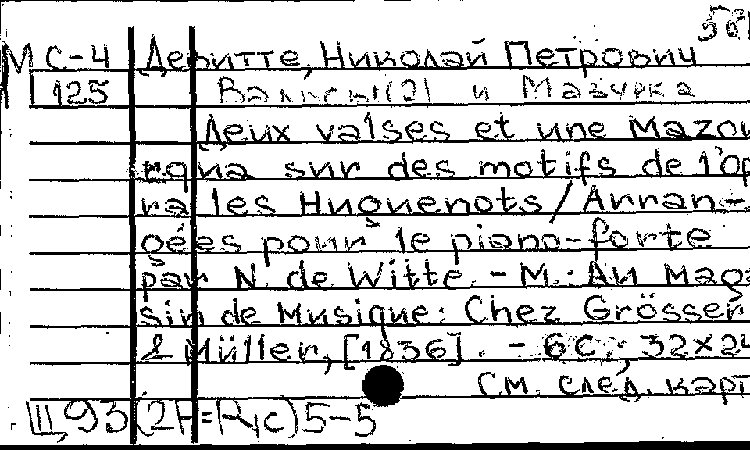 МС-4 Девитте, Николай Петрович
125 Вальсы(2) и Мазурка
Деux valses et une Mazou
rqua sur des motifs de l'op
ra les Huguenots/Arran-
gées pour le piano-forte
par N. de Witte. - M.: Au Maga
sin de Musique: Chez Grösser
& Müller, [1836]. - 6 с.; 32x24
См. след. карт
Щ93(2Р=R,с)5-5